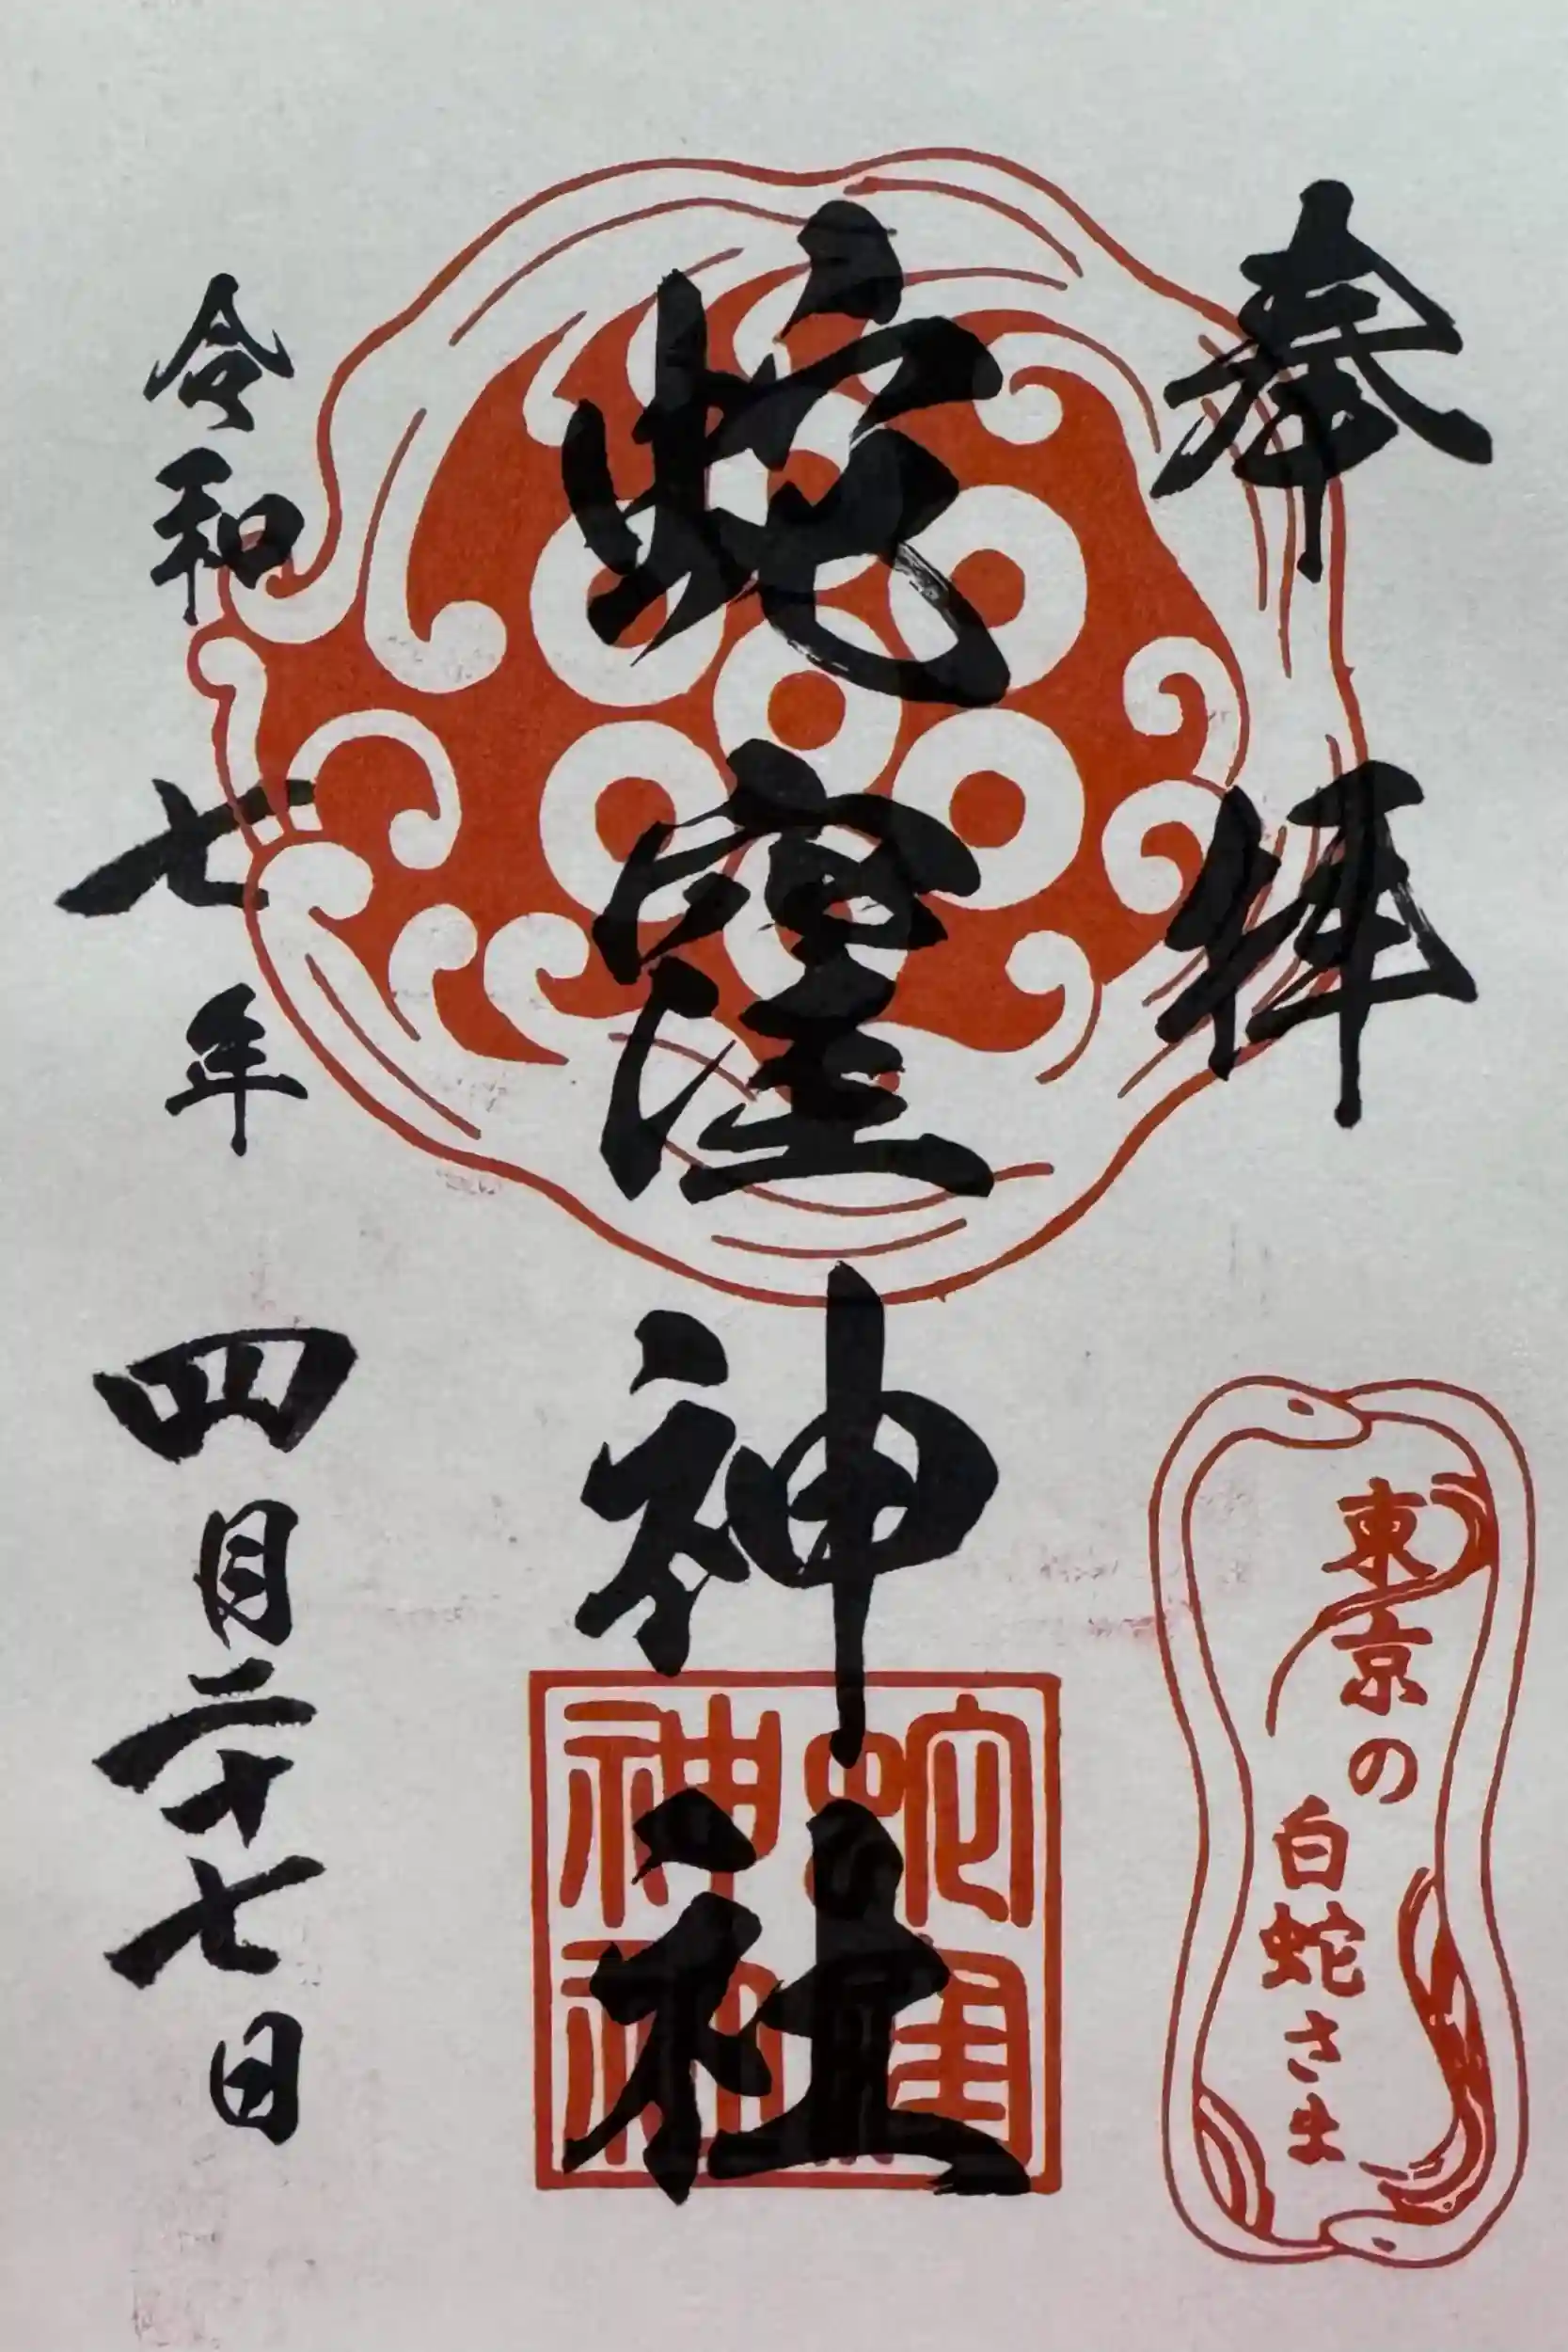 奉拝
東京の
白蛇さま
蛇窪神社
蛇窪
神社
令和七年四月二十七日